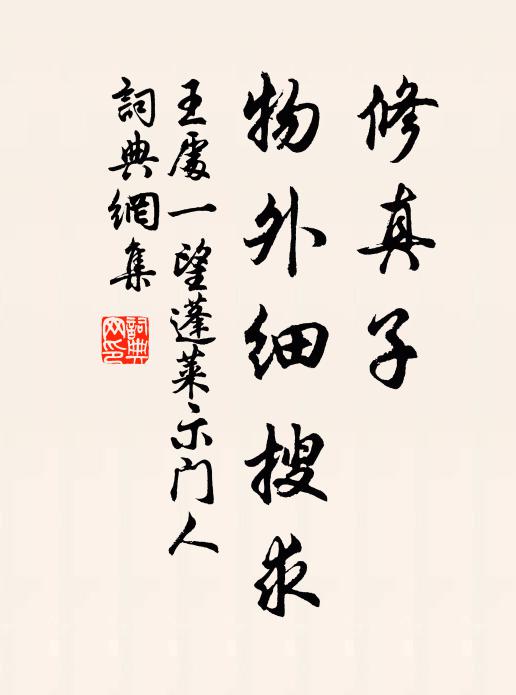 修真子
物外细搜求
王處一望蓬萊示门人
詞典網集
詞典
网印